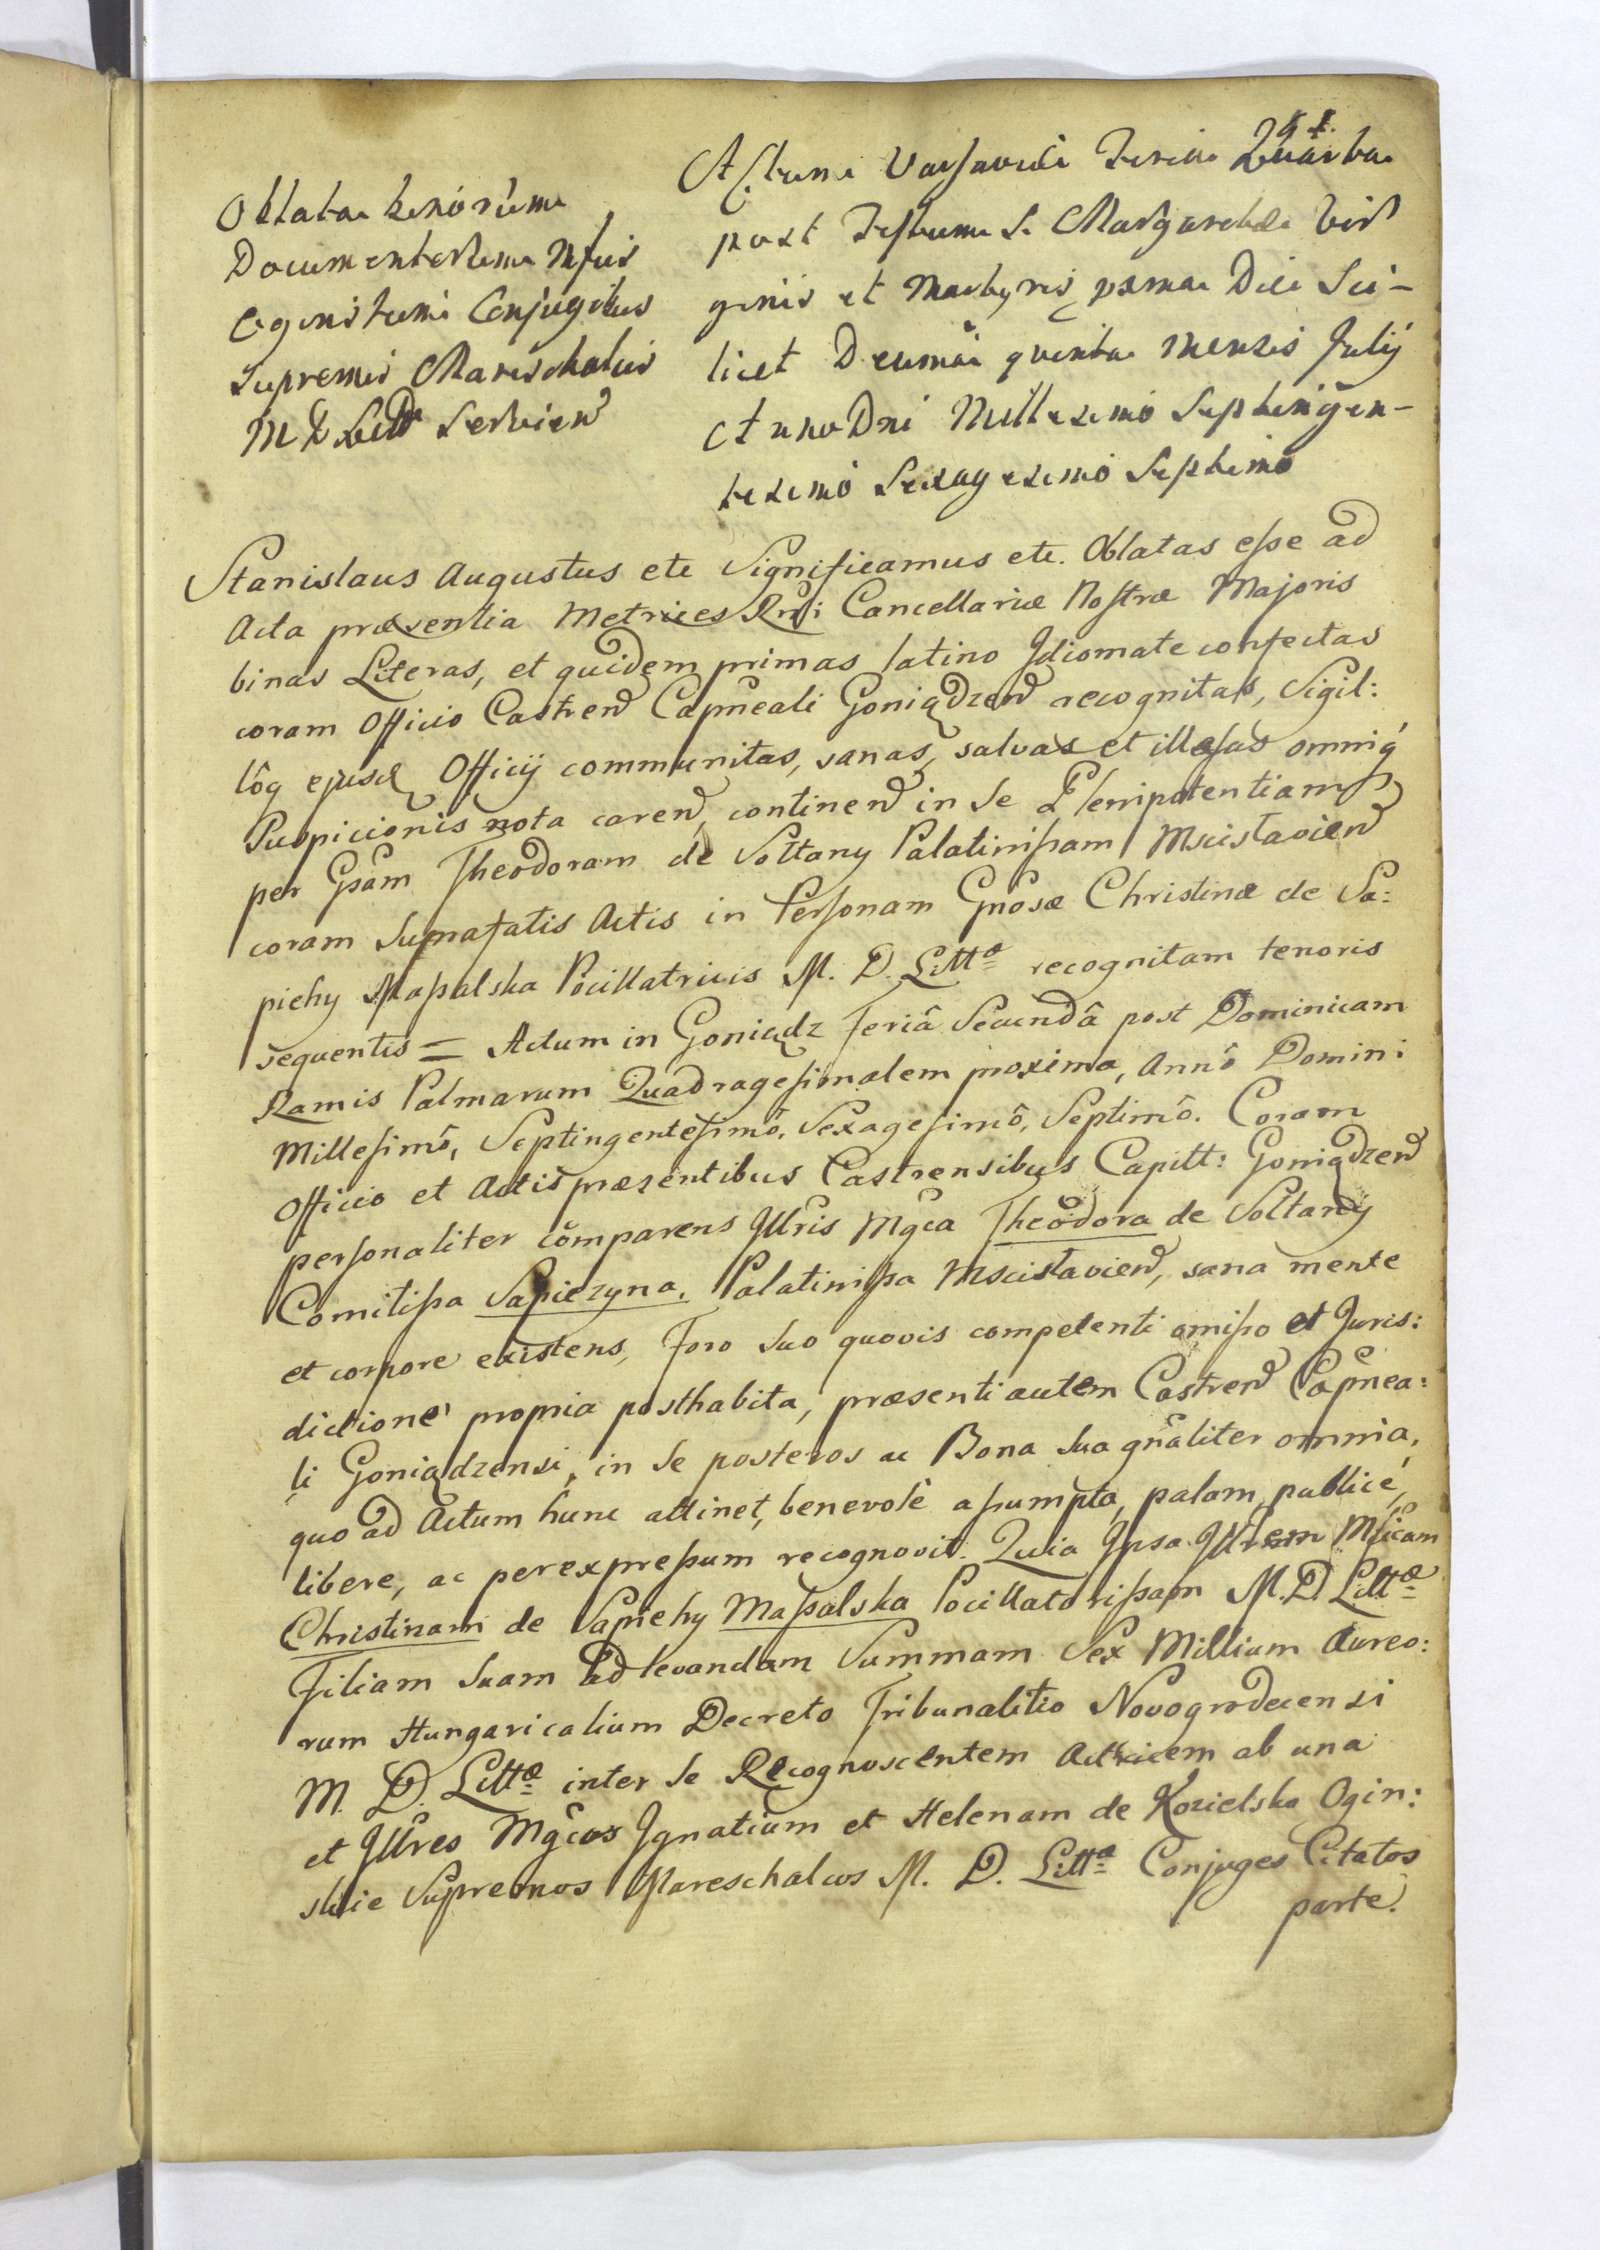 Oblata binorum
Documentorum Mfcis
Oginstum Conjugibus
Supremis Mareschalcis
M D Litt Servien
Actum Varsaviæ Feria Quarta
post Festum S. Margarethæ Vir
ginis et Martyris pxma Die Sci-
licet Decima quinta Mensis Julij
Anno Dni Millesimo Septingen-
tesimo Sexagesimo Septimo
Stanislaus Augustus etc Significamus etc. Oblatas esse ad
Acta præsentia Metrices Rni Cancellariæ Nostræ Majoris
binas Literas, et quidem primas latino Idiomate confectas
coram Officio Castren Capneali Goniądzen recognitas, Sigil:
lôq ejusd Officij communitas, sanas, salvas et illæsas omniq
Suspicionis nota caren, continen in se Plenipotentiam
per Gsam Theodoram de Soltany Palatinissam Mscislavien
coram Suprafatis Actis in Personam Gnosæ Christinæ de Sa:
piehy Massalska Pocillatricis M. D. Littæ recognitam tenoris
sequentis = Actum in Goniądz Feriâ Secundâ post Dominicam
Ramis Palmarum Quadragesimalem proxima, Annô Domini
Millesimô, Septingentesimô, Sexagesimô, Septimô. Coram
Officio et Actis præsentibus Castrensibus Capitt: Goniądzen
personaliter comparens Illris Mgca Theodora de Soltany
Comitissa Sapiezyna, Palatinissa Mscislavien, sana mente
et corpore existens, Foro suo quovis competenti omisso et Juris:
dictione propria posthabita, præsenti autem Castren Capnea:
li Goniądzensi, in se posteros ac Bona sua gnaliter omnia,
quo ad Actum hunc attinet, benevolè assumpta, palam, publicè,
libere, ac per expressum recognovit. Quia Ipsa Illrem Mficam
Christinam de Sapiehy Massalska Pocillatorissam M. D. Littæ
Filiam suam ad levandam Summam Sex Millium Aureo:
rum Hungaricalium Decreto Tribunalitio Novogrodecensi
M. D. Littæ inter se Recognoscentem Actricem ab una
et Illres Mgcos Ignatium et Helenam de Kozielsko Ogin:
skie Supremos Mareschalcos M. D. Litta Conjuges Citatos
parte.